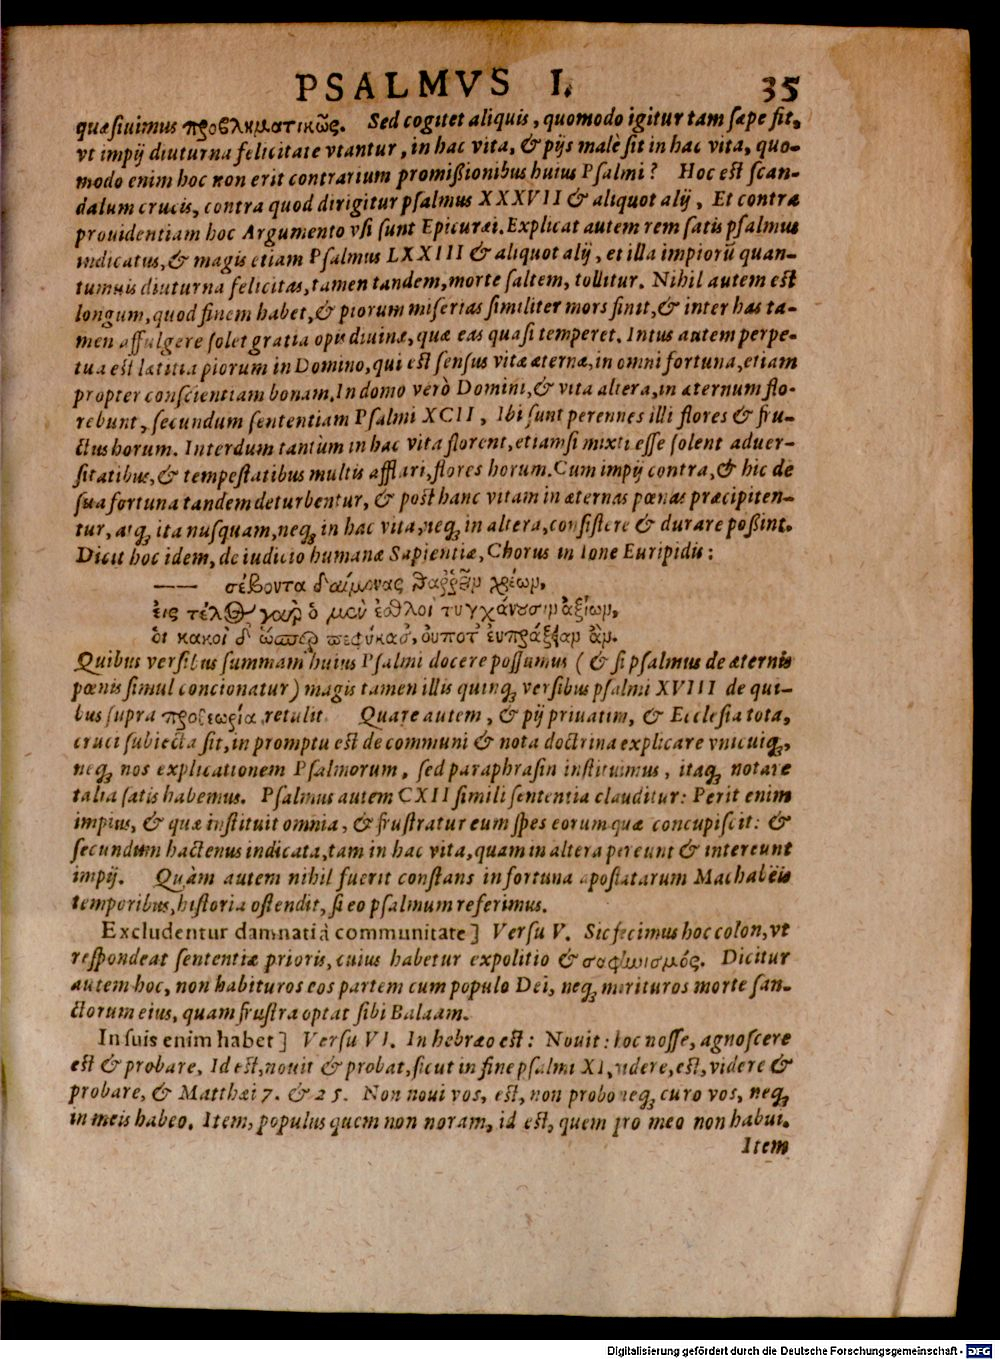 PSALMVS I. 35
quæsiuimus προβληματικῶς. Sed cogitet aliquis, quomodo igitur tam sæpe fit,
vt impij diuturna felicitate vtantur, in hac vita, & pijs malè sit in hac vita, quo-
modo enim hoc non erit contrarium promißionibus huius Psalmi? Hoc est scan-
dalum crucis, contra quod dirigitur psalmus XXXVII & aliquot alij, Et contra
prouidentiam hoc Argumento vsi sunt Epicuræi. Explicat autem rem satis psalmus
indicatus, & magis etiam Psalmus LXXIII & aliquot alij, et illa impiorũ quan-
tumuis diuturna felicitas, tamen tandem, morte saltem, tollitur. Nihil autem est
longum, quod finem habet, & piorum miserias similiter mors finit, & inter has ta-
men affulgere solet gratia opis diuinæ, quæ eas quasi temperet. Intus autem perpe-
tua est lætitia piorum in Domino, qui est sensus vitæ æternæ, in omni fortuna, etiam
propter conscientiam bonam. In domo verò Domini, & vita altera, in æternum flo-
rebunt, secundum sententiam Psalmi XCII, Ibi sunt perennes illi flores & fru-
ctus horum. Interdum tantùm in hac vita florent, etiamsi mixti esse solent aduer-
sitatibus, & tempestatibus multis afflari, flores horum. Cum impij contra, & hic de
sua fortuna tandem deturbentur, & post hanc vitam in æternas pœnas præcipiten-
tur, atq; ita nusquam, neq; in hac vita, neq; in altera, consistere & durare poßint.
Dicit hoc idem, de iudicio humanæ Sapientiæ, Chorus in Ione Euripidis:
—— σέβοντα δαίμονας θαρρεῖν χρέων,
εἰς τέλος γαὰρ ὁ μὲν ἐσθλοὶ τυγχάνουσιν ἀξίων,
ὁι κακοὶ δ' ὥσπερ πεφύκασ', ὀυποτ' ἐυπράξειαν ἂν.
Quibus versibus summam huius Psalmi docere possumus (& si psalmus de æternis
pœnis simul concionatur) magis tamen illis quinq; versibus psalmi XVIII de qui-
bus supra προθεωρία retulit. Quare autem, & pij priuatim, & Ecclesia tota,
cruci subiecta sit, in promptu est de communi & nota doctrina explicare vnicuiq;,
neq; nos explicationem Psalmorum, sed paraphrasin instituimus, itaq; notare
talia satis habemus. Psalmus autem CXII simili sententia clauditur: Perit enim
impius, & quæ instituit omnia, & frustratur eum spes eorum quæ concupiscit: &
secundum hactenus indicata, tam in hac vita, quam in altera pereunt & intereunt
impij. Quàm autem nihil fuerit constans in fortuna apostatarum Machabëis
temporibus, historia ostendit, si eo psalmum referimus.
Excludentur damnatià communitate] Versu V. Sic fecimus hoc colon, vt
respondeat sententiæ prioris, cuius habetur expolitio & σαφωνισμός. Dicitur
autem hoc, non habituros eos partem cum populo Dei, neq; morituros morte san-
ctorum eius, quam frustra optat sibi Balaam.
In suis enim habet] Versu VI. In hebræo est: Nouit: hoc nosse, agnoscere
est & probare, Id est, nouit & probat, sicut in fine psalmi XI, videre, est, videre &
probare, & Matthæi 7. & 25. Non noui vos, est, non probo neq; curo vos, neq;
in meis habeo. Item, populus quem non noram, id est, quem pro meo non habui.
Item
Digitalisierung gefördert durch die Deutsche Forschungsgemeinschaft - DFG